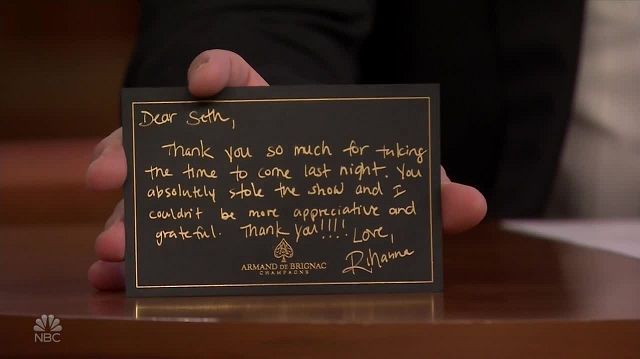 Dear Seth,
Thank you so much for taking
the time to come last night. You
absolutely stole the show and I
couldn't be more appreciative and
grateful. Thank you!!!! Love,
Rihanna
ARMAND DE BRIGNAC
CHAMPAGNE
NBC